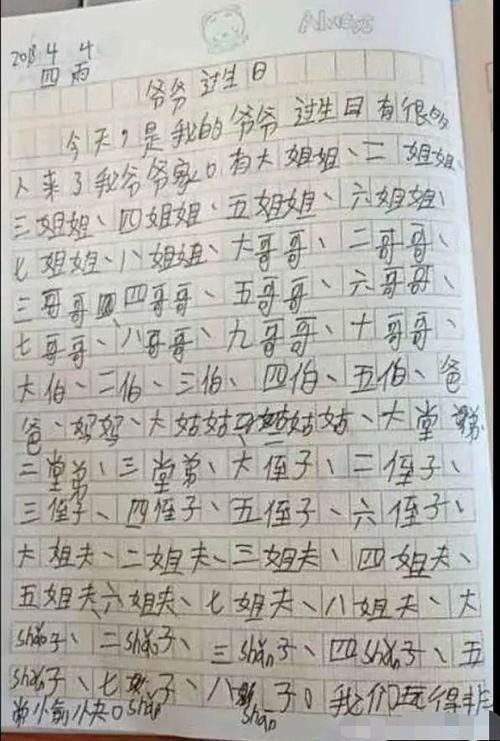 2018 4 4
四 雨
爷爷过生日
今天，是我的爷爷过生日有很多
人来了我爷爷家。有大姐姐、二姐姐、
三姐姐、四姐姐、五姐姐、六姐姐、
七姐姐、八姐姐、大哥哥、二哥哥、
三哥哥、四哥哥、五哥哥、六哥哥、
七哥哥、八哥哥、九哥哥、十哥哥、
大伯、二伯、三伯、四伯、五伯、爸
爸、妈妈、大姑姑、二姑姑、大堂弟
二堂弟、三堂弟、大侄子、二侄子、
三侄子、四侄子、五侄子、六侄子、
大姐夫、二姐夫、三姐夫、四姐夫、
五姐夫、六姐夫、七姐夫、八姐夫、大
shǎn子、二shǎn子、三shǎn子、四shǎn子、五
shǎn子、七shǎn子、八shǎn子。我们玩得非